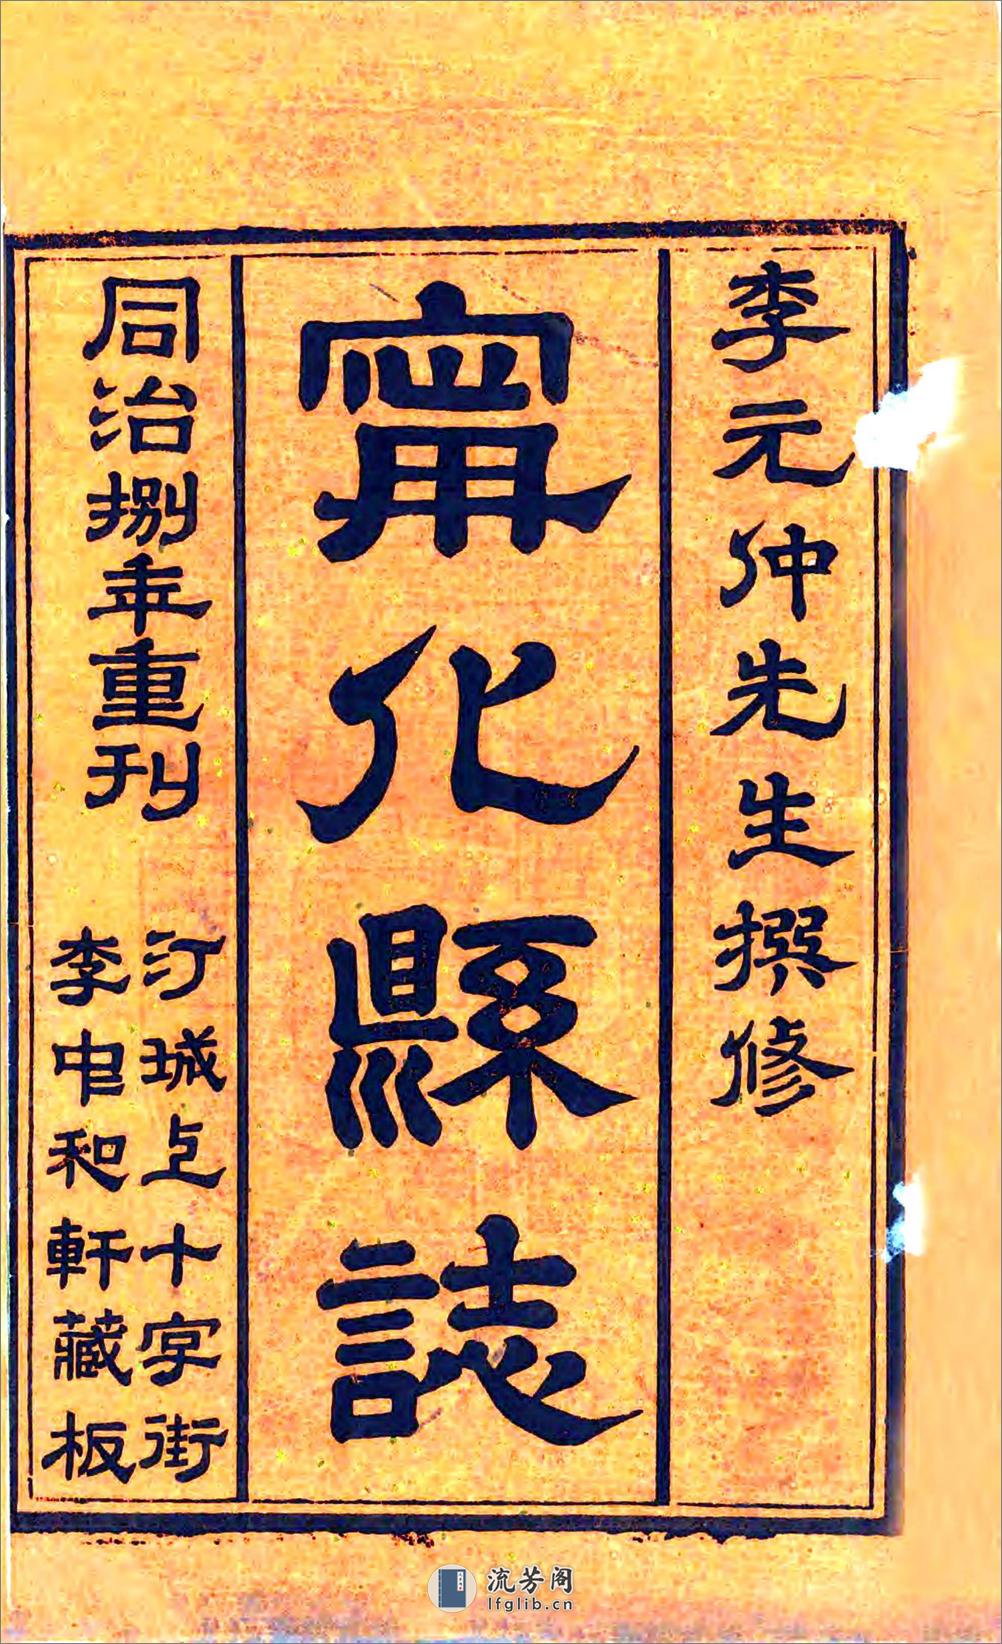 李元仲先生撰修
甯化縣誌
同治捌年重刊
汀城上十字街
李中和軒藏板
流芳阁
lfglib.cn